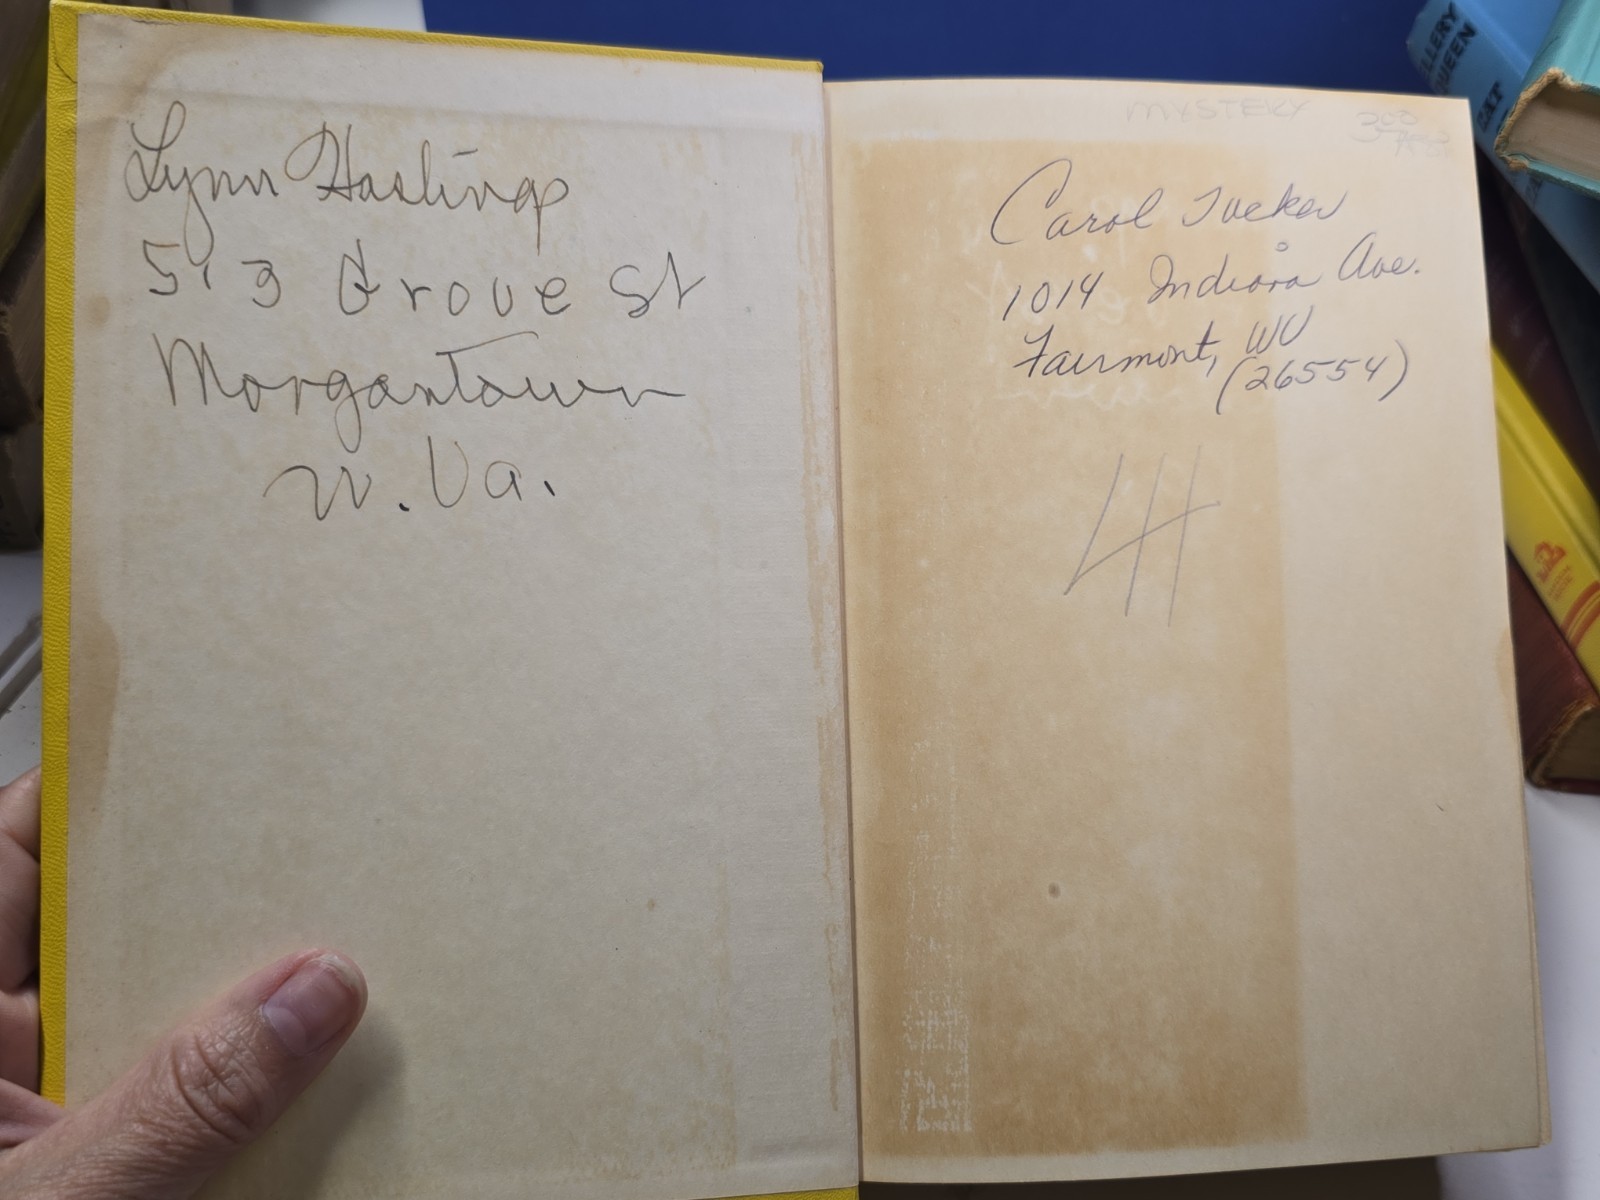 Lynn Hastings
513 Grove St
Morgantown
W. Va.
MYSTERY
300
Carol Tucker
1014 Indiana Ave.
Fairmont, WV
(26554)
4
ELLERY
QUEEN